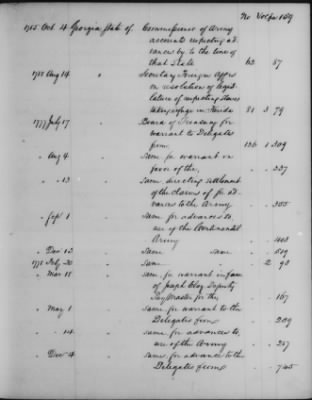 No Vol Pa 189
1785 Oct. 4 Georgia State of. Commissioner of Army
accounts respecting ad-
vances by to the line of
that State 62 87
1788 Aug 14 " Secretary Foreign Affrs
on resolution of legis-
lature of respecting Slaves
taking refuge in Florida 81 3 79
1777 July 17 " Board of Treasury for
warrant to Delegates
from 136 1 309
" Aug 4 " Same for warrant in
favor of the, " " 337
" " 13 " Same, directing settlement
of the claims of for ad-
vances to the Army " " 355
" Sep 1 " Same for advances to,
use of the Continental
Army " " 403
" Dec 13 " Same same " " 519
1778 July 20 " Same " " 2 93
" Mar 18 " same for warrant in favor
of Joseph Clay, Deputy
Pay Master for the, " " 167
" May 1 " Same for warrant to the
Delegates from " " 209
" " 14 " same for advances to,
use of the Army " " 237
" Dec 4 " same, for advance to the
Delegates from " " 745